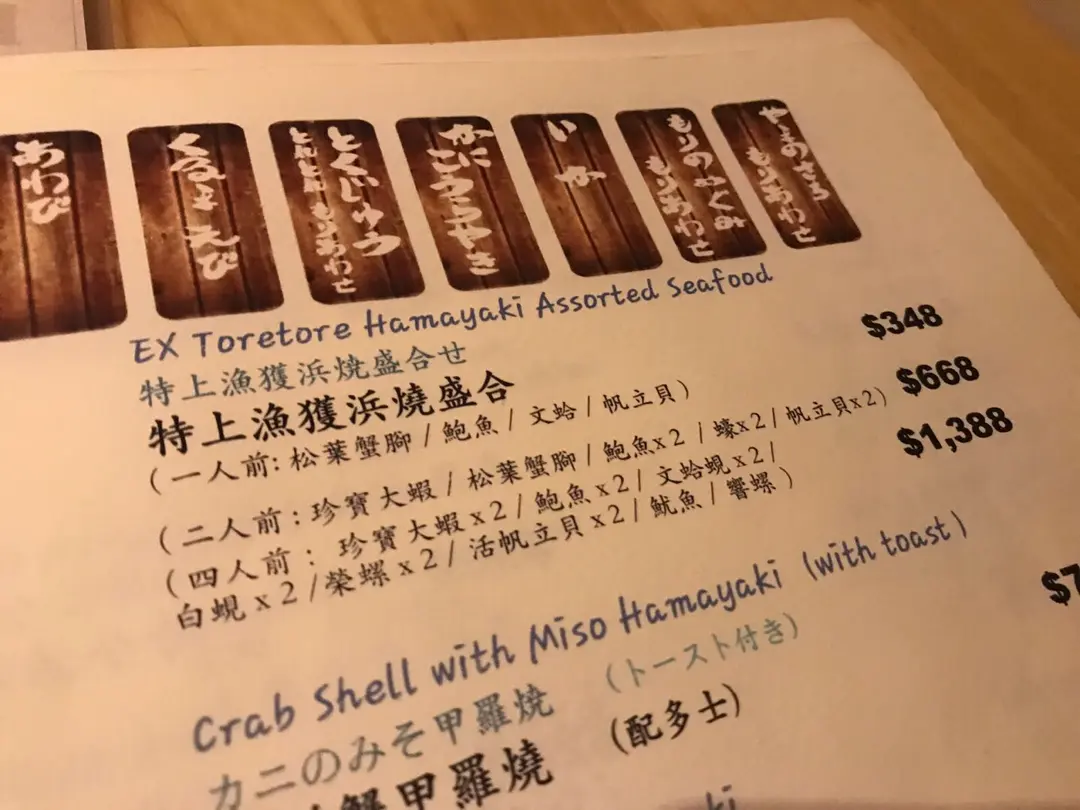 あわび
くるまえび
とくじゅう
とれとれもりあわせ
かにこうらやき
いか
もりのめぐみ
もりあわせ
やまのさち
もりあわせ
EX Toretore Hamayaki Assorted Seafood
特上漁獲浜焼盛合せ
特上漁獲浜燒盛合
(一人前: 松葉蟹腳 / 鮑魚 / 文蛤 / 帆立貝)
$348
(二人前: 珍寶大蝦 / 松葉蟹腳 / 鮑魚x2 / 蠔x2 / 帆立貝x2)
$668
(四人前: 珍寶大蝦 x 2 / 鮑魚 x 2 / 文蛤蜆 x 2 /
$1,388
白蜆 x 2 / 榮螺 x 2 / 活帆立貝 x 2 / 魷魚 / 響螺)
Crab Shell with Miso Hamayaki (with toast)
$7
カニのみそ甲羅焼 (トースト付き)
蟹甲羅燒 (配多士)